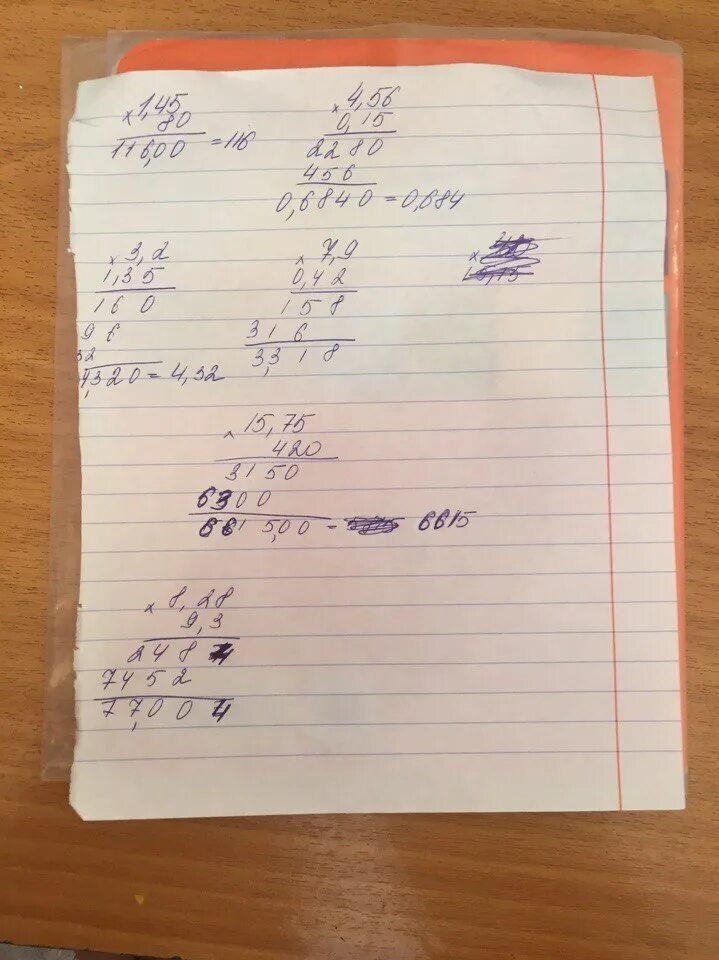 ×1,45
80
116,00 =116
×4,56
0,15
2280
456
0,6840=0,684
×3,2
1,35
160
96
32
4,320=4,32
×7,9
0,42
158
316
3,318
×
×15,75
420
3150
6300
6615,00 = 6615
×8,28
9,3
2484
7452
77,004